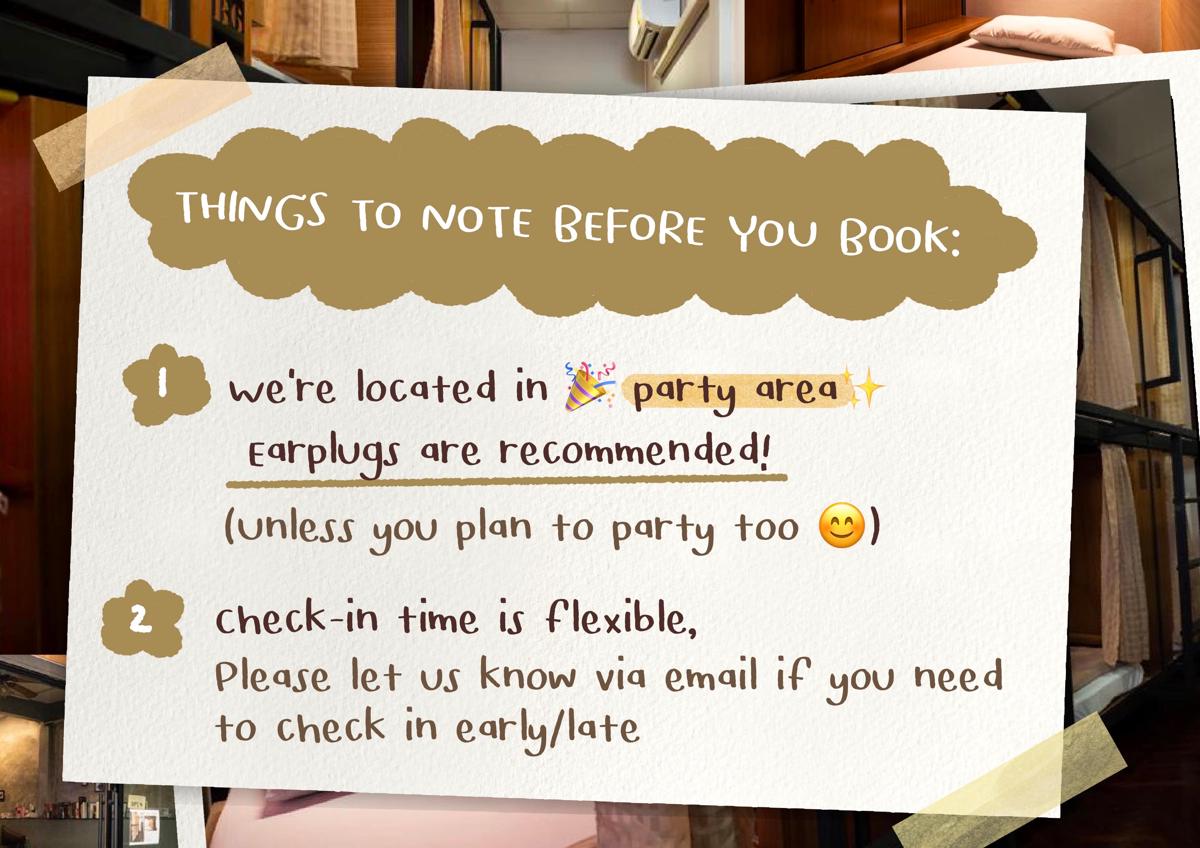 THINGS TO NOTE BEFORE YOU BOOK:
1 we're located in 🎉 party area✨
Earplugs are recommended!
(unless you plan to party too 😊)
2 Check-in time is flexible,
Please let us know via email if you need
to check in early/late
OPEN